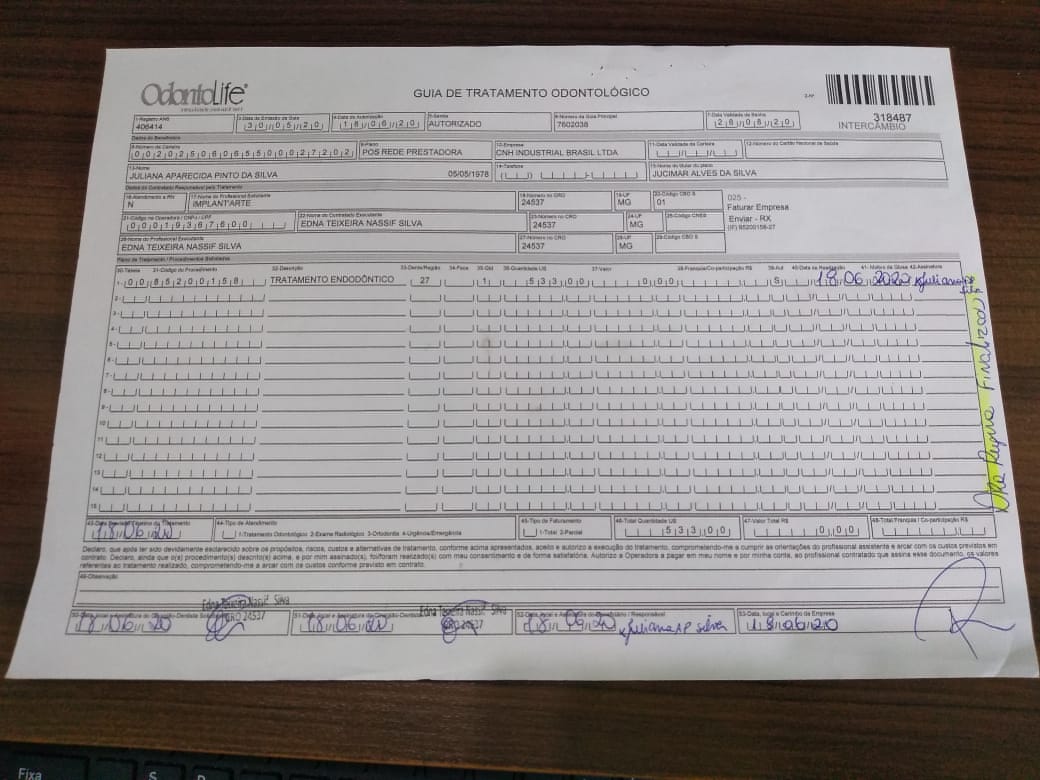 OdontoLife
GUIA DE TRATAMENTO ODONTOLÓGICO
2-Nº
318487
INTERCÂMBIO
1-Registro ANS
406414
3-Data de Emissão da Guia
30/05/20
4-Data de Autorização
18/06/20
5-Senha
AUTORIZADO
6-Número da Guia Principal
7602038
7-Data Validade da Senha
28/08/20
Dados do Beneficiário
8-Número da Carteira
00202506065500027202
9-Plano
POS REDE PRESTADORA
10-Empresa
CNH INDUSTRIAL BRASIL LTDA
11-Data Validade da Carteira
12-Número do Cartão Nacional de Saúde
13-Nome
JULIANA APARECIDA PINTO DA SILVA 05/05/1978
14-Telefone
15-Nome do titular do plano
JUCIMAR ALVES DA SILVA
Dados do Contratado Responsável pelo Tratamento
16-Atendimento a RN
N
17-Nome do Profissional Solicitante
IMPLANT'ARTE
18-Número no CRO
24537
19-UF
MG
20-Código CBO S
01
025 -
Faturar Empresa
Enviar - RX
(IF) 85200158-27
21-Código na Operadora / CNPJ / CPF
00019367600
22-Nome do Contratado Executante
EDNA TEIXEIRA NASSIF SILVA
23-Número no CRO
24537
24-UF
MG
25-Código CNES
26-Nome do Profissional Executante
EDNA TEIXEIRA NASSIF SILVA
27-Número no CRO
24537
28-UF
MG
29-Código CBO S
Plano de Tratamento / Procedimentos Solicitados
30-Tabela 31-Código do Procedimento 32-Descrição 33-Dente/Região 34-Face 35-Qtd 36-Quantidade US 37-Valor 38-Franquia/Co-participação R$ 39-Aut 40-Data de Realização 41- Motivo da Glosa 42-Assinatura
1- 00 85200158 TRATAMENTO ENDODÔNTICO 27 1 533 00 0 00 S 18/06/2020 xJuliana AP Silva
2-
3-
4-
5-
6-
7-
8-
9-
10
11
12
13
14
15
Finalizado
43-Data Previsão Término do Tratamento
18/06/20
44-Tipo de Atendimento
1-Tratamento Odontológico 2-Exame Radiológico 3-Ortodontia 4-Urgência/Emergência
45-Tipo de Faturamento
1-Total 2-Parcial
46-Total Quantidade US
533 00
47-Valor Total R$
0 00
48-Total Franquia / Co-participação R$
Declaro, que após ter sido devidamente esclarecido sobre os propósitos, riscos, custos e alternativas de tratamento, conforme acima apresentados, aceito e autorizo a execução do tratamento, comprometendo-me a cumprir as orientações do profissional assistente e arcar com os custos previstos em
contrato. Declaro, ainda que o(s) procedimento(s) descrito(s) acima, e por mim assinado(s), foi/foram realizado(s) com meu consentimento e de forma satisfatória. Autorizo a Operadora a pagar em meu nome e por minha conta, ao profissional contratado que assina esse documento, os valores
referentes ao tratamento realizado, comprometendo-me a arcar com os custos conforme previsto em contrato.
49-Observação
Edna Teixeira Nassif Silva
CRO 24537
Edna Teixeira Nassif Silva
CRO 24537
50-Data, local e Assinatura do Cirurgião-Dentista Solicitante
18/06/20
51-Data, local e Assinatura do Cirurgião-Dentista
18/06/20
52-Data, local e Assinatura do Beneficiário / Responsável
18/06/20 xJuliana AP Silva
53-Data, local e Carimbo da Empresa
18/06/20
Fixa
S
D